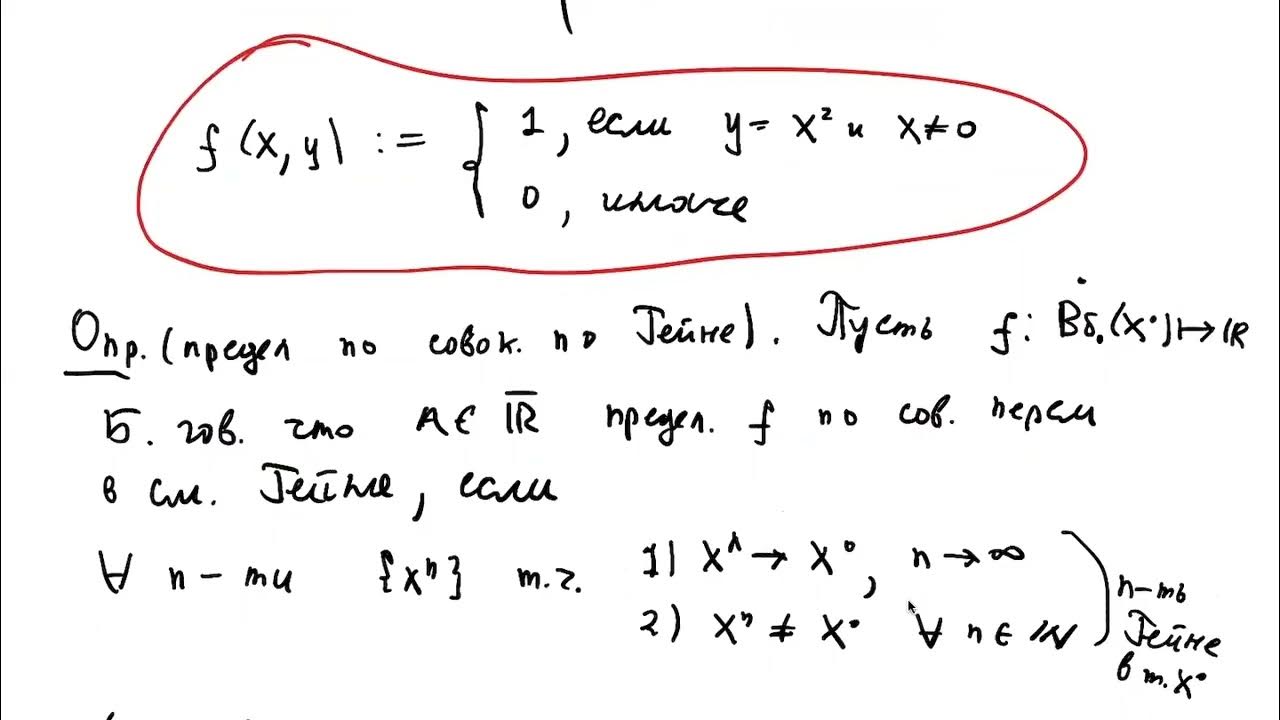 f(x,y) := { 1, если y = x² и x ≠ 0
0, иначе
Опр. (предел по совок. по Гейне). Пусть f: B̊δ₀(x⁰) ↦ ℝ
Б. гов. что A ∈ ℝ̅ предел. f по сов. перем
в см. Гейне, если
∀ п-ти {xⁿ} т.ч. 1) xⁿ → x⁰, n → ∞
2) xⁿ ≠ x⁰ ∀ n ∈ ℕ
п-ть
Гейне
в т. x⁰